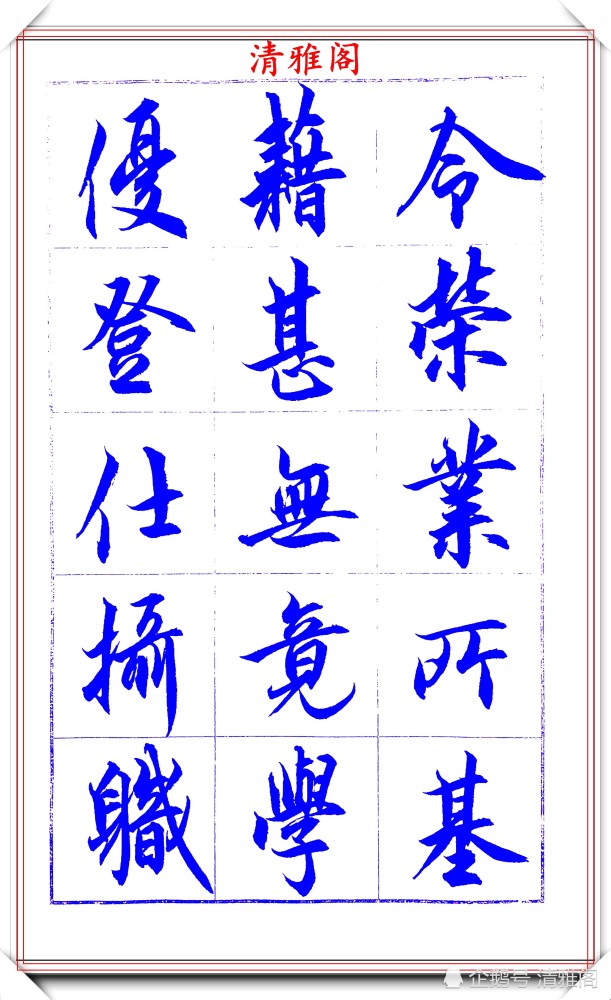 清雅阁
令榮業所基
藉甚無竟學
優登仕攝職
企鹅号 清雅阁